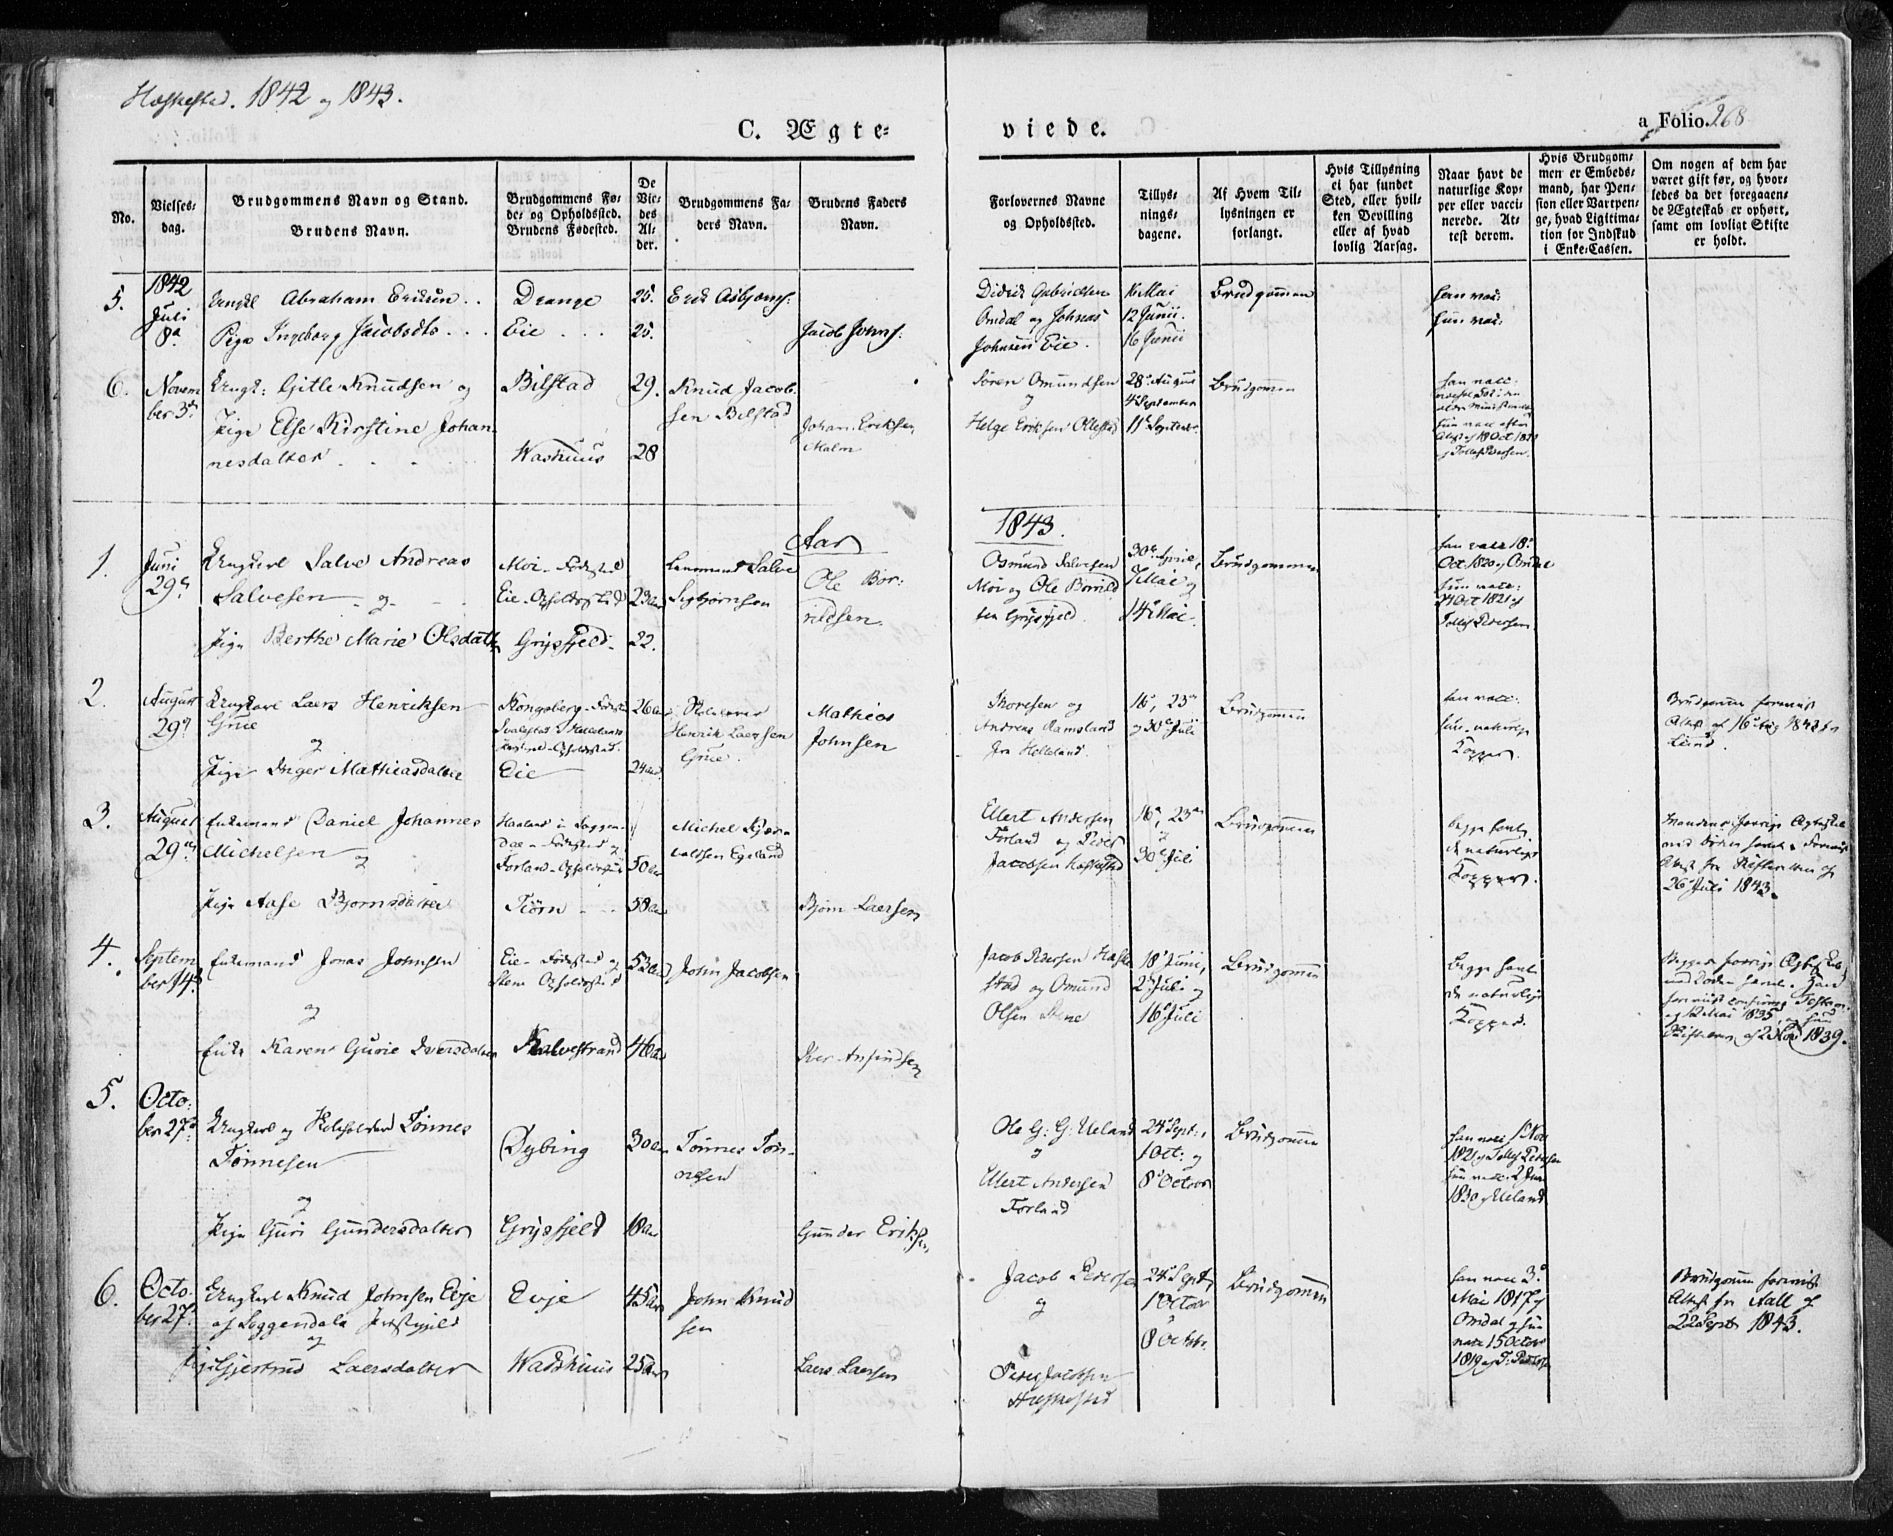 Heskestad. 1842 og 1843.
C. Ægte- viede.
a Folio. 268
No.
Vielses-
dag.
Brudgommens Navn og Stand.
Brudens Navn.
Brudgommens Fø-
de- og Opholdssted.
Brudens Fødested.
De
Vie-
des
Al-
der.
Brudgommens Fa-
ders Navn.
Brudens Faders
Navn.
Forlovernes Navne
og Opholdssted.
Tillys-
nings-
dagene.
Af Hvem Til-
lysningen er
forlangt.
Hvis Tillysning
ei har fundet
Sted, eller hvil-
ken Bevilling
eller af hvad
lovlig Aarsag.
Naar havt de
naturlige Kop-
per eller vacci-
nerede. At-
test derom.
Hvis Brudgom-
men er Embeds-
mand, har Pen-
sion eller Vartpen-
ge, hvad Ligitima-
tion for Indskud
i Enke-Cassen.
Om nogen af dem har
været gift før, og hvor-
ledes da det foregaaen-
de Ægteskab er ophørt,
samt om lovligt Skifte
er holdt.
1842
5. Juli
8de
Ungkl Abraham Eriksen
Pige Ingeborg Jacobsdtr
Drange 25.
Eie 25.
Erik Asbjørns:
Jacob Johns:
Didrik Gabrielsen
Omdal og Johnas
Johnsen Eie.
16 Mai
12 Junii.
16 Junii
Brudgommen
han vac:
hun vac:
6. Novem
ber 3de
Ungk: Gitle Knudsen og
Pige Else Kirstine Johan-
nesdatter
Bilstad 29.
Washuus 28
Knud Jacob-
sen Bilstad
Johan Eriksen
Malm
Søren Omundsen
og
Helge Eriksen Ollestad
28 August
4 September
11 Septembr.
Brudgommen
han vacc:
hun vacc efter
Attest af 19 Oct
af Tollef Pedersen.
Aar 1843.
1. Juni
29de
Ungkarl Salve Andreas
Salvesen og
Pige Berthe Marie Olsdatter
Moi - Fødested
Eie - Opholdssted 23 aar
Grysfjeld 22.
Lensmand Salve
Sigbjørnsen
Ole Bor-
rildsen.
Osmund Salvesen
Moi og Ole Borrild
sen Grysfjeld.
30te April,
7 Mai og
14de Mai.
Brudgommen
han vacc 18
Oct 1820 af Omdal
hun vacc:
Oct 1821 af
Tollef Pedersen.
2. August
29de
Ungkarl Laers Henriksen
Grue
og
Pige Inger Mathiasdatter
Kongsberg - Fødested
Opholdssted.
Eie 24 aar
26 aar
Henrik Laersen
Grue.
Mathias
Johnsen
og
Andreas Ramsland
fra Helleland.
16, 23
og 30te Juli
Brudgommen
han vacc:
hun naturlige
Kopper.
Brudgommen forevist
Attest af 16 Aug 1842 fra
Lund.
3. August
29de
Enkemand Daniel Johannes
Michelsen
og
Pige Aase Bjornsdatter
Haaland i Soggen-
dal - Fødested og
Forland - Opholdssted 50 aar
Tiörn 58 aar
Michel
Egeland
Bjørn Laersen
Elert Andersen
Forland og Peder
Jacobsen Heskestad
16, 23
og
30te Juli
Brudgommen
begge havt
de naturlige
Kopper.
Mandens forrige Ægteskab
ved Døden hævet. Forevist
Attest fra Skifteretten af
26 Juli 1843.
4. Septem
ber 14de
Enkemand Jonas Johnsen
og
Enke Karen Gurie Iversdatter
Eie - Fødested og
Stene Opholdssted 53 aar
Kalvestrand 46 aar
John Jacobsen
Iver Anfindsen
Jacob Pedersen Heske
stad og Omund
Olsen Stene
18 Juni,
2 Juli og
16 Juli
Brudgommen
begge havt
de naturlige
Kopper.
Begges forrige Ægteskab
ved Døden hævet. Han
forevist
1835, og hun
af 2 Nov 1839.
5. Octo-
ber 27de
Ungkarl og Tönnes
Tönnesen
og
Pige Guri Gundersdatter
Dybing 30 aar
Grysfjeld 18 aar
Tönnes Tön-
nesen
Gunder Eriksen
Ole G: G: Ueland
og
Elert Andersen
Forland
24 Sept:,
1 Oct: og
8 October
Brudgommen
han vacc 1 Nov
1821 af Tollef Pedersen
hun vacc: 2 Juni
1830 af Ueland
6. Octo-
ber 27.
Ungkarl Knud Johnsen Eeje
af Soggendals Præstegjeld
og
Pige Gjertrud Laersdatter
Eeje 45 aar
Wadshuus 25 aar
John Knud
sen
Laers Laersen
Jacob Pedersen
og
Peder Jacobsen
Heskestad
24 Sept,
1 October
8 Octobr.
Brudgommen
han vacc 3
Mai 1817 af
Omdal og hun
vacc 15 October
1819 af T: Pedersen
Brudgommen forevist
Attest fra Aall af
22 Sept 1843.